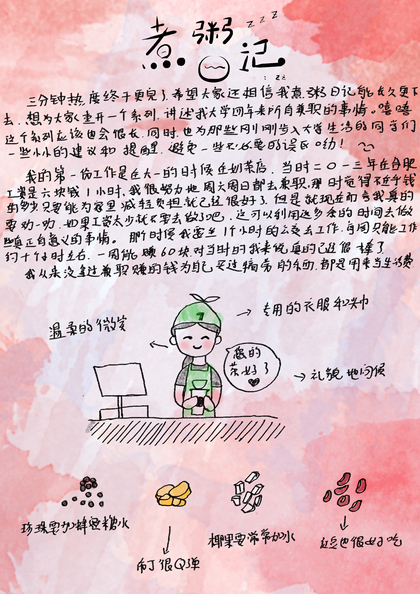 煮粥日记
z z z
三分钟热度终于更完了希望大家还相信我煮粥日记能长久更下
去,想为大家重开一个系列,讲述我大学四年来所有兼职的事情。嘻嘻
这个系列应该也会很长,同时,也为那些刚刚步入大学生活的同学们
一些小小的建议和提醒,避免一些不必要的误区。加油!~
我的第一份工作是在大一的时候在奶茶店,当时二〇一三年在合肥
工资是六块钱1小时,我很努力地周六周日都去兼职,那时觉得不在乎钱
多钱少只要能为家里减轻负担就已经很好了,但是就现在而言我真的
要劝一劝,如果工资太少就不要去做了吧,还可以利用这多余的时间去做
些真正有意义的事情。那时候我需坐1个小时的公交去工作,每周只能工作
约十个小时左右,一周能赚60块,对当时的我来说真的已经很棒了
我从来没拿过兼职赚的钱为自己买过啥
的东西,都是用来当生活费
温柔的微笑
专用的衣服和帽
7
您的茶好了
礼貌地问候
珍珠要加
糖水
布丁很Q弹
椰果要常常加水
红豆也很好吃